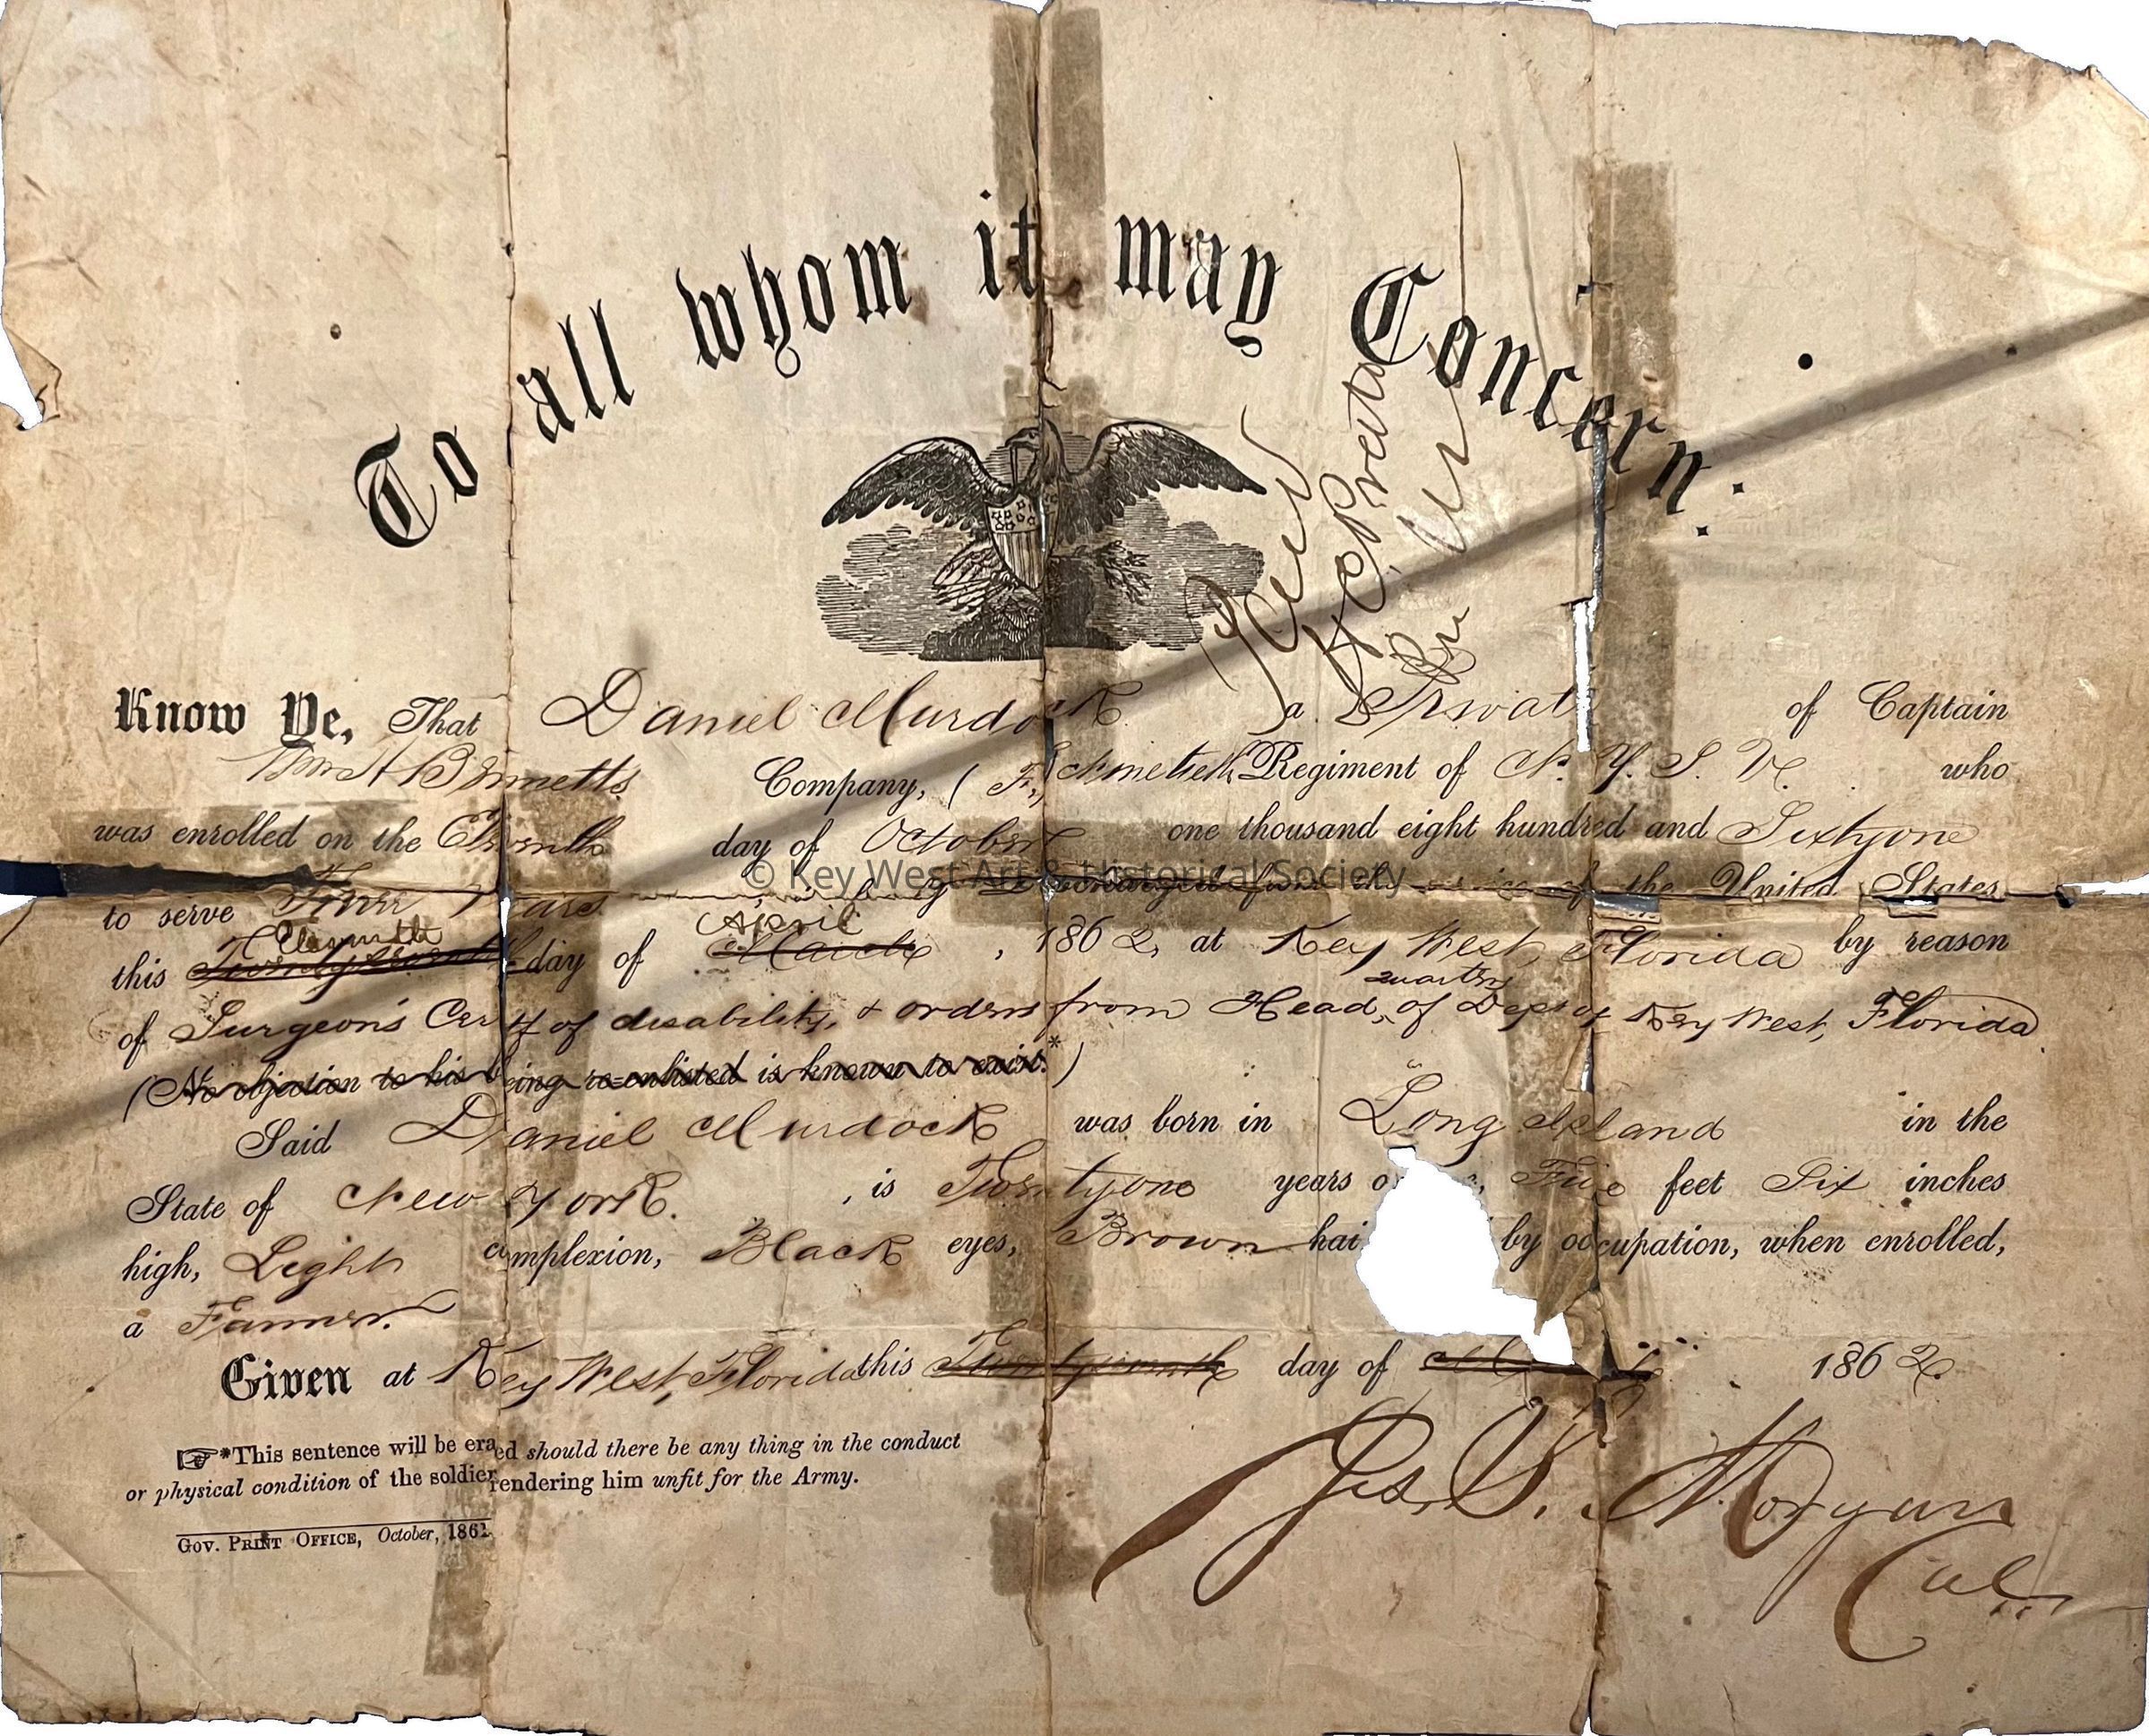 To all whom it may Concern:
Paid
Know Ye, That Daniel Murdock a Privat of Captain
Wm H Bennetts Company, (F,) Regiment of N. Y. S. V. who
was enrolled on the Eleventh day of October one thousand eight hundred and Sixtyone
© Key West Art & Historical Society
to serve Three Years is hereby Discharged from the service of the United States
Eleventh April
this day of March, 1862, at Key West, Florida by reason
quarters
of Surgeon's Certf of disability, & orders from Head, of Dept of Key West, Florida
(No objection to his being re-enlisted is known to exist.*)
Said Daniel Murdock was born in Long Island in the
State of New York. , is Twentyone years o , Five feet Six inches
high, Light complexion, Black eyes, Brown hai by occupation, when enrolled,
a Farmer.
Given at Key West, Florida this day of 1862.
☞*This sentence will be era ed should there be any thing in the conduct
or physical condition of the soldier rendering him unfit for the Army.
Gov. Print Office, October, 1861.
Morgan
Col.